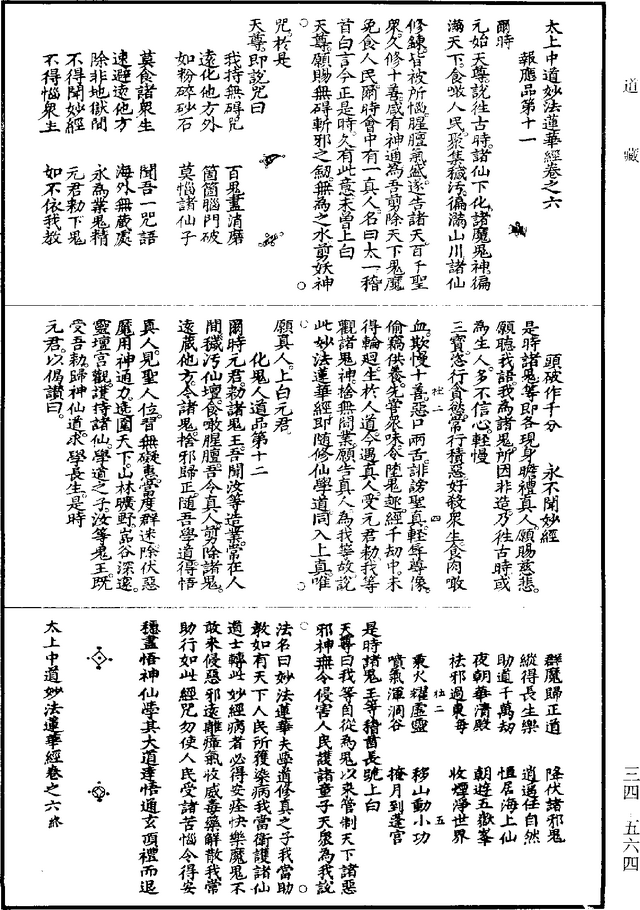 道藏
太上中道妙法蓮華經卷之六
報應品第十一
爾時
元始天尊說往古時諸仙下化諸魔鬼神徧
滿天下食噉人民聚集穢汚徧滿山川諸仙
修鍊皆被所惱腥膻氣盛遂告諸天百千聖
衆久修十善咸有神通為吾剪除天下鬼魔
免食人民爾時會中有一真人名曰太一稽
首白言今正是時久有此意未曾上白
天尊願賜無碍斬邪之劒無為之水剪妖神
咒於是
天尊即說咒曰
我持無碍咒　百鬼盡消磨
遠化他方外　箇箇腦門破
如粉碎砂石　莫惱諸仙子
莫食諸衆生　聞吾一咒語
速避遠他方　海外無藏處
除非地獄間　永為業鬼精
不得聞妙經　元君勑下鬼
不得惱衆生　如不依我教
頭破作千分　永不聞妙經
是時諸鬼等即各現身瞻禮真人願賜慈悲
願聽我語我為諸鬼所因非造乃往古時或
為生人多不信心輕慢
三寶恣行貪慾常行積惡好殺衆生食肉噉
血欺慢十善惡口兩舌誹謗聖真輕辱尊像
偷竊供養先嘗衆味令陸鬼趣經千劫中未
得輪廻生於人道今遇真人受元君勑我等
觀諸鬼神捨無間業願告真人為我等故說
此妙法蓮華經即随修仙學道同入上真唯
願真人上白元君
化鬼人道品第十二
爾時元君勑諸鬼王吾聞汝等造業常在人
間穢汚仙壇食噉腥膻吾令真人剪除諸鬼
遠藏他方令諸鬼捨邪歸正随吾學道得悟
真人見聖人位習無礙惠當度群迷除伏惡
魔用神通力遶圍天下山林曠野嵓谷深邃
靈壇宮觀護持諸仙學道之子汝等鬼王既
受吾勑歸神仙道求學長生是時
元君以偈讚曰
群魔歸正道　降伏諸邪鬼
縱得長生樂　逍遙任自然
助道千萬劫　恒居海上仙
夜朝華清殿　朝遊五嶽峯
祛邪過東海　收煙淨世界
乘火耀虛靈　移山動小功
噴氣渾澗谷　掩月到蓬宮
是時諸鬼王等稽首長號上白
天尊曰我等自從為鬼以來管制天下諸惡
邪神無令侵害人民護諸童子天衆為我說
法名曰妙法蓮華夫學道修真之子我當助
敎如有天下人民所獲染病我當衛護諸仙
道士轉此妙經病者必得安痊快樂魔鬼不
敢来侵惡邪遠離瘴氣收威毒藥解散我常
助行如此經咒勿使人民受諸苦惱令得安
穩盡悟神仙學其大道達悟通玄頂禮而退
太上中道妙法蓮華經卷之六終
三四—五六四